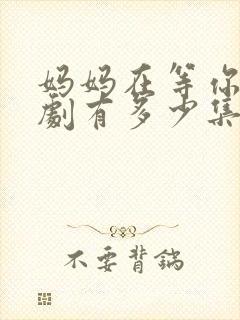 妈妈在等你
劇有多少集
不要背鍋